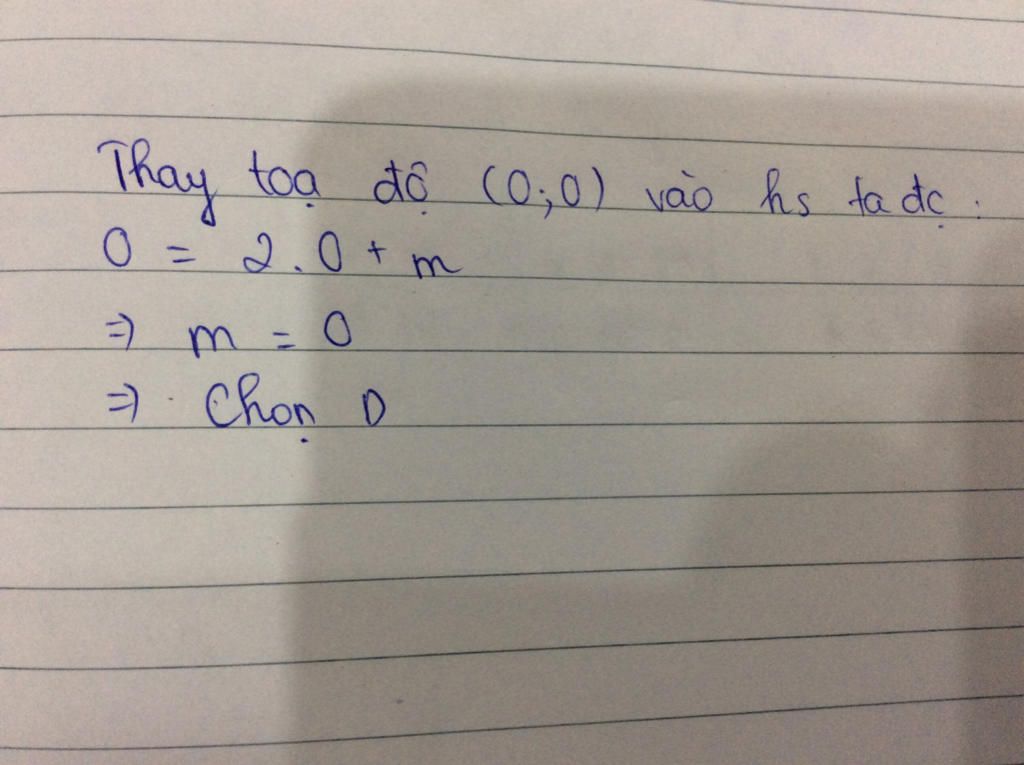 Thay toạ độ (0;0) vào hs ta đc :
0 = 2.0 + m
=> m = 0
=> Chọn D